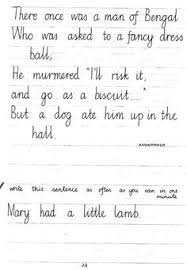 There once was a man of Bengal
Who was asked to a fancy dress
ball,
He murmered "I'll risk it,
and go as a biscuit....."
But a dog ate him up in the
hall.
ANONYMOUS
write this sentence as often as you can in one
minute
Mary had a little lamb.
24